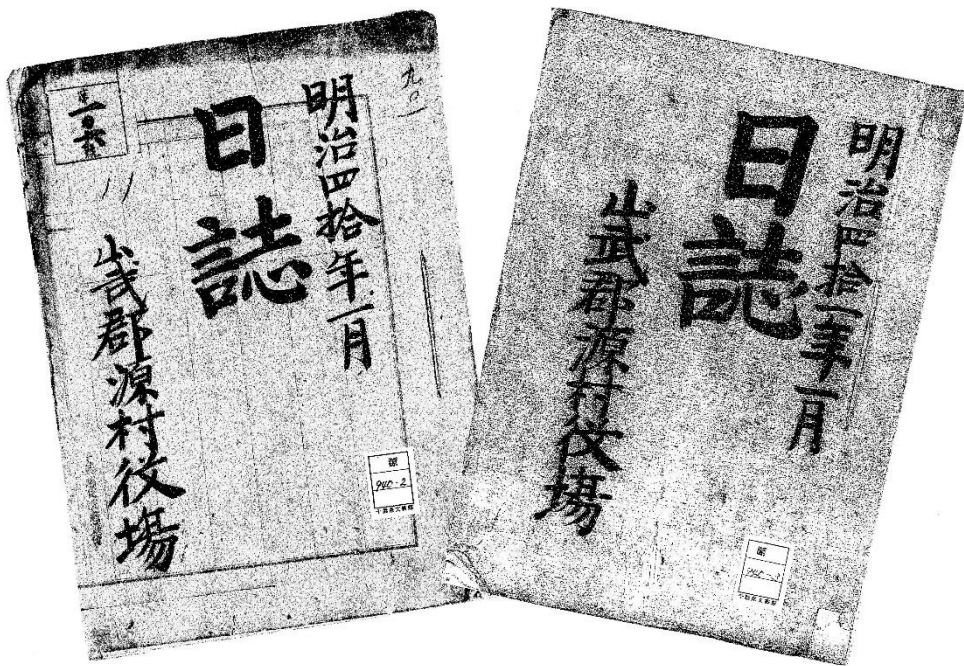 明治四拾年一月
日誌
山武郡源村役場
九〇一
11
源
940-2
千葉県文書館
明治四拾一年一月
日誌
山武郡源村役場
源
940-3
千葉県文書館